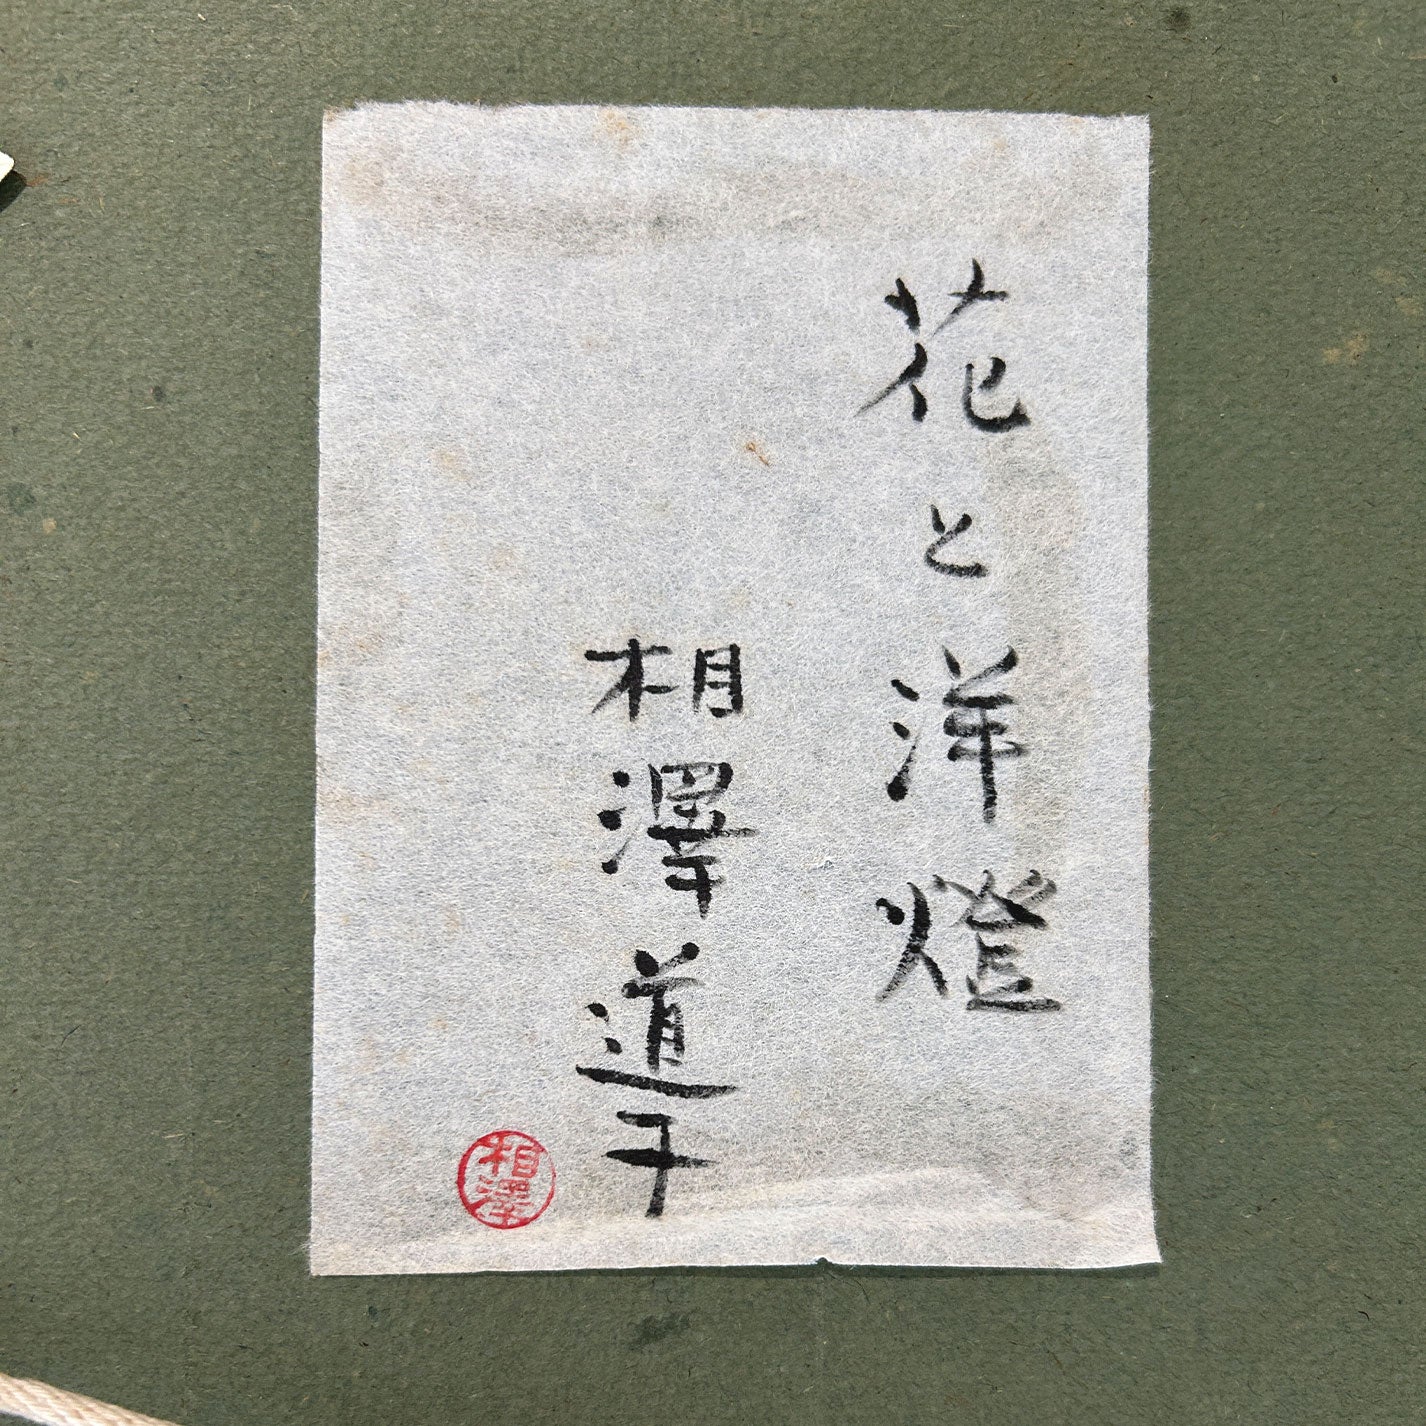 花と洋燈
相澤道子
相澤